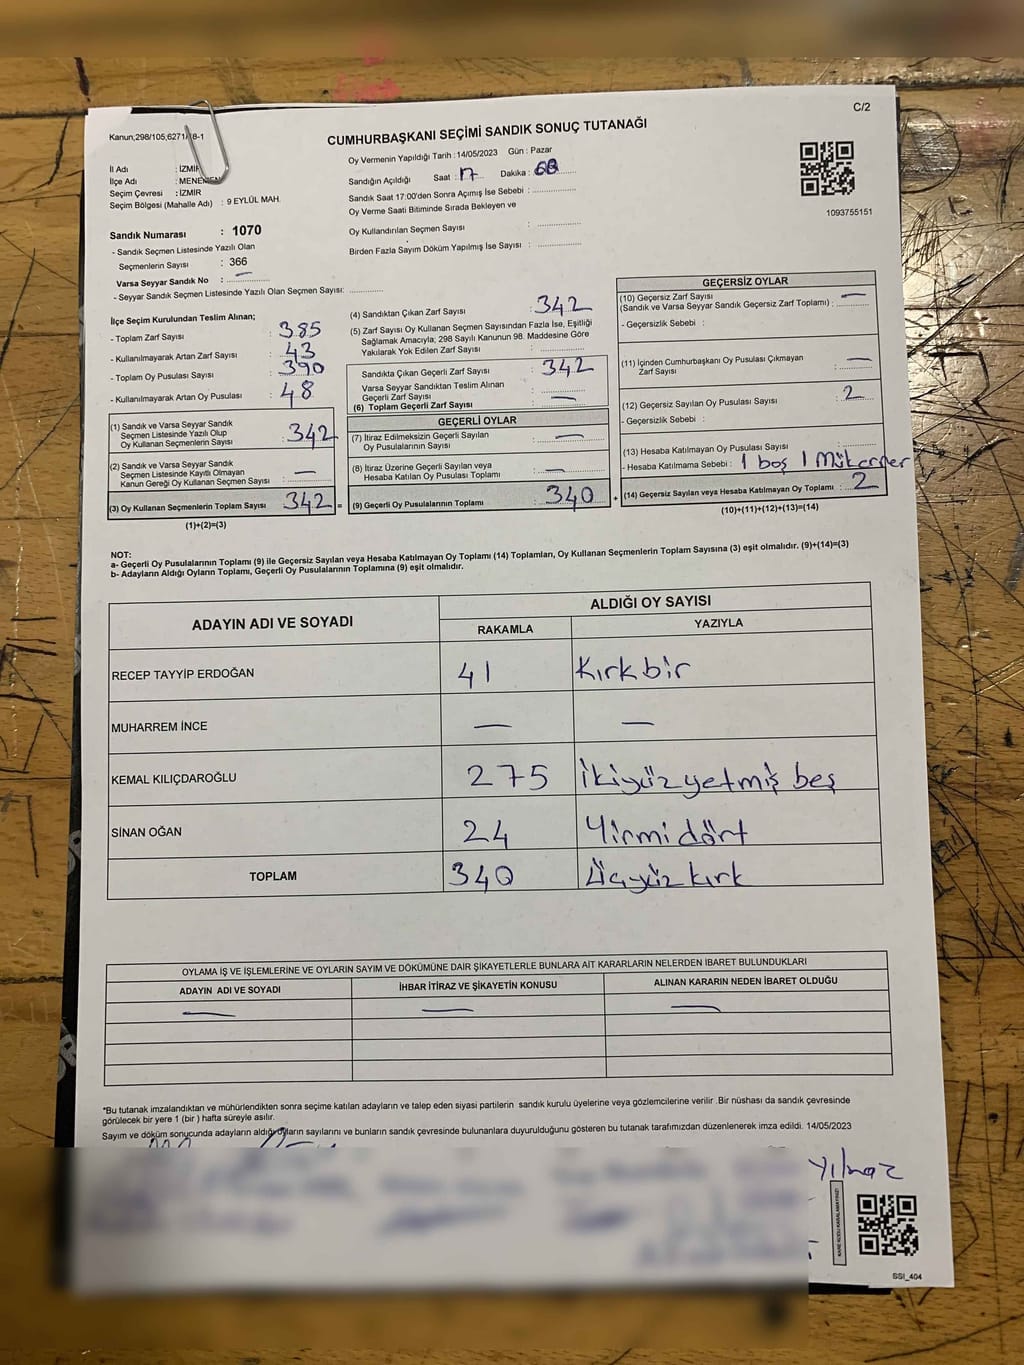 C/2
Kanun;298/105;6271/18-1
CUMHURBAŞKANI SEÇİMİ SANDIK SONUÇ TUTANAĞI
İl Adı : İZMİR
İlçe Adı : MENEMEN
Seçim Çevresi : İZMİR
Seçim Bölgesi (Mahalle Adı) : 9 EYLÜL MAH.
Oy Vermenin Yapıldığı Tarih : 14/05/2023 Gün : Pazar
Sandığın Açıldığı Saat : 17 Dakika :
Sandık Saat 17:00'den Sonra Açımış İse Sebebi :
Oy Verme Saati Bitiminde Sırada Bekleyen ve
Oy Kullandırılan Seçmen Sayısı :
Birden Fazla Sayım Döküm Yapılmış İse Sayısı :
1093755151
Sandık Numarası : 1070
- Sandık Seçmen Listesinde Yazılı Olan
Seçmenlerin Sayısı : 366
Varsa Seyyar Sandık No : —
- Seyyar Sandık Seçmen Listesinde Yazılı Olan Seçmen Sayısı:
İlçe Seçim Kurulundan Teslim Alınan;
- Toplam Zarf Sayısı : 385
- Kullanılmayarak Artan Zarf Sayısı : 43
- Toplam Oy Pusulası Sayısı : 390
- Kullanılmayarak Artan Oy Pusulası : 48
(1) Sandık ve Varsa Seyyar Sandık
Seçmen Listesinde Yazılı Olup
Oy Kullanan Seçmenlerin Sayısı : 342
(2) Sandık ve Varsa Seyyar Sandık
Seçmen Listesinde Kayıtlı Olmayan
Kanun Gereği Oy Kullanan Seçmen Sayısı : —
(3) Oy Kullanan Seçmenlerin Toplam Sayısı : 342 =
(1)+(2)=(3)
(4) Sandıktan Çıkan Zarf Sayısı : 342
(5) Zarf Sayısı Oy Kullanan Seçmen Sayısından Fazla İse, Eşitliği
Sağlamak Amacıyla; 298 Sayılı Kanunun 98. Maddesine Göre
Yakılarak Yok Edilen Zarf Sayısı :
Sandıkta Çıkan Geçerli Zarf Sayısı : 342
Varsa Seyyar Sandıktan Teslim Alınan
Geçerli Zarf Sayısı :
(6) Toplam Geçerli Zarf Sayısı : —
GEÇERLİ OYLAR
(7) İtiraz Edilmeksizin Geçerli Sayılan
Oy Pusulalarının Sayısı : —
(8) İtiraz Üzerine Geçerli Sayılan veya
Hesaba Katılan Oy Pusulası Toplamı : —
(9) Geçerli Oy Pusulalarının Toplamı : 340 +
GEÇERSİZ OYLAR
(10) Geçersiz Zarf Sayısı —
(Sandık ve Varsa Seyyar Sandık Geçersiz Zarf Toplamı) :
- Geçersizlik Sebebi :
(11) İçinden Cumhurbaşkanı Oy Pusulası Çıkmayan
Zarf Sayısı : —
(12) Geçersiz Sayılan Oy Pusulası Sayısı : 2
- Geçersizlik Sebebi :
(13) Hesaba Katılmayan Oy Pusulası Sayısı :
- Hesaba Katılmama Sebebi : 1 boş 1 Mükerrer
(14) Geçersiz Sayılan veya Hesaba Katılmayan Oy Toplamı : 2
(10)+(11)+(12)+(13)=(14)
NOT:
a- Geçerli Oy Pusulalarının Toplamı (9) ile Geçersiz Sayılan veya Hesaba Katılmayan Oy Toplamı (14) Toplamları, Oy Kullanan Seçmenlerin Toplam Sayısına (3) eşit olmalıdır. (9)+(14)=(3)
b- Adayların Aldığı Oyların Toplamı, Geçerli Oy Pusulalarının Toplamına (9) eşit olmalıdır.
ADAYIN ADI VE SOYADI ALDIĞI OY SAYISI
RAKAMLA YAZIYLA
RECEP TAYYİP ERDOĞAN 41 Kırkbir
MUHARREM İNCE — —
KEMAL KILIÇDAROĞLU 275 İkiyüzyetmiş beş
SİNAN OĞAN 24 Yirmi dört
TOPLAM 340 Üçyüz kırk
OYLAMA İŞ VE İŞLEMLERİNE VE OYLARIN SAYIM VE DÖKÜMÜNE DAİR ŞİKAYETLERLE BUNLARA AİT KARARLARIN NELERDEN İBARET BULUNDUKLARI
ADAYIN ADI VE SOYADI İHBAR İTİRAZ VE ŞİKAYETİN KONUSU ALINAN KARARIN NEDEN İBARET OLDUĞU
— — —
*Bu tutanak imzalandıktan ve mühürlendikten sonra seçime katılan adayların ve talep eden siyasi partilerin sandık kurulu üyelerine veya gözlemcilerine verilir .Bir nüshası da sandık çevresinde
görülecek bir yere 1 (bir ) hafta süreyle asılır.
Sayım ve döküm sonucunda adayların aldığı oyların sayılarını ve bunların sandık çevresinde bulunanlara duyurulduğunu gösteren bu tutanak tarafımızdan düzenlenerek imza edildi. 14/05/2023
Yılmaz
KARE KODU KARALAMAYINIZ!
SSI_404